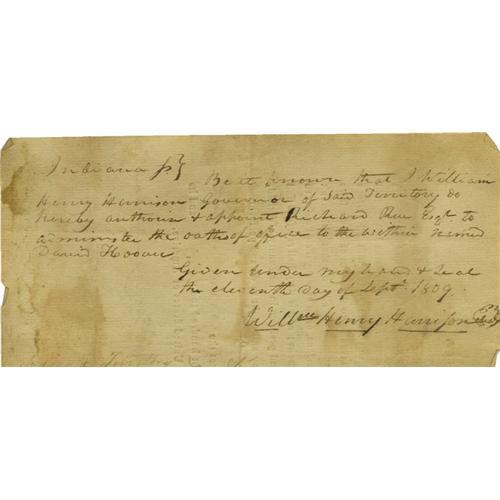 Indiana ss }
Be it known that I William
Henry Harrison Governor of said Territory do
hereby authorise & appoint Richard Rue Esqr. to
administer the oath of office to the within named
David Hoover
Given under my hand & seal
the eleventh day of Septr. 1809.
Willm Henry Harrison